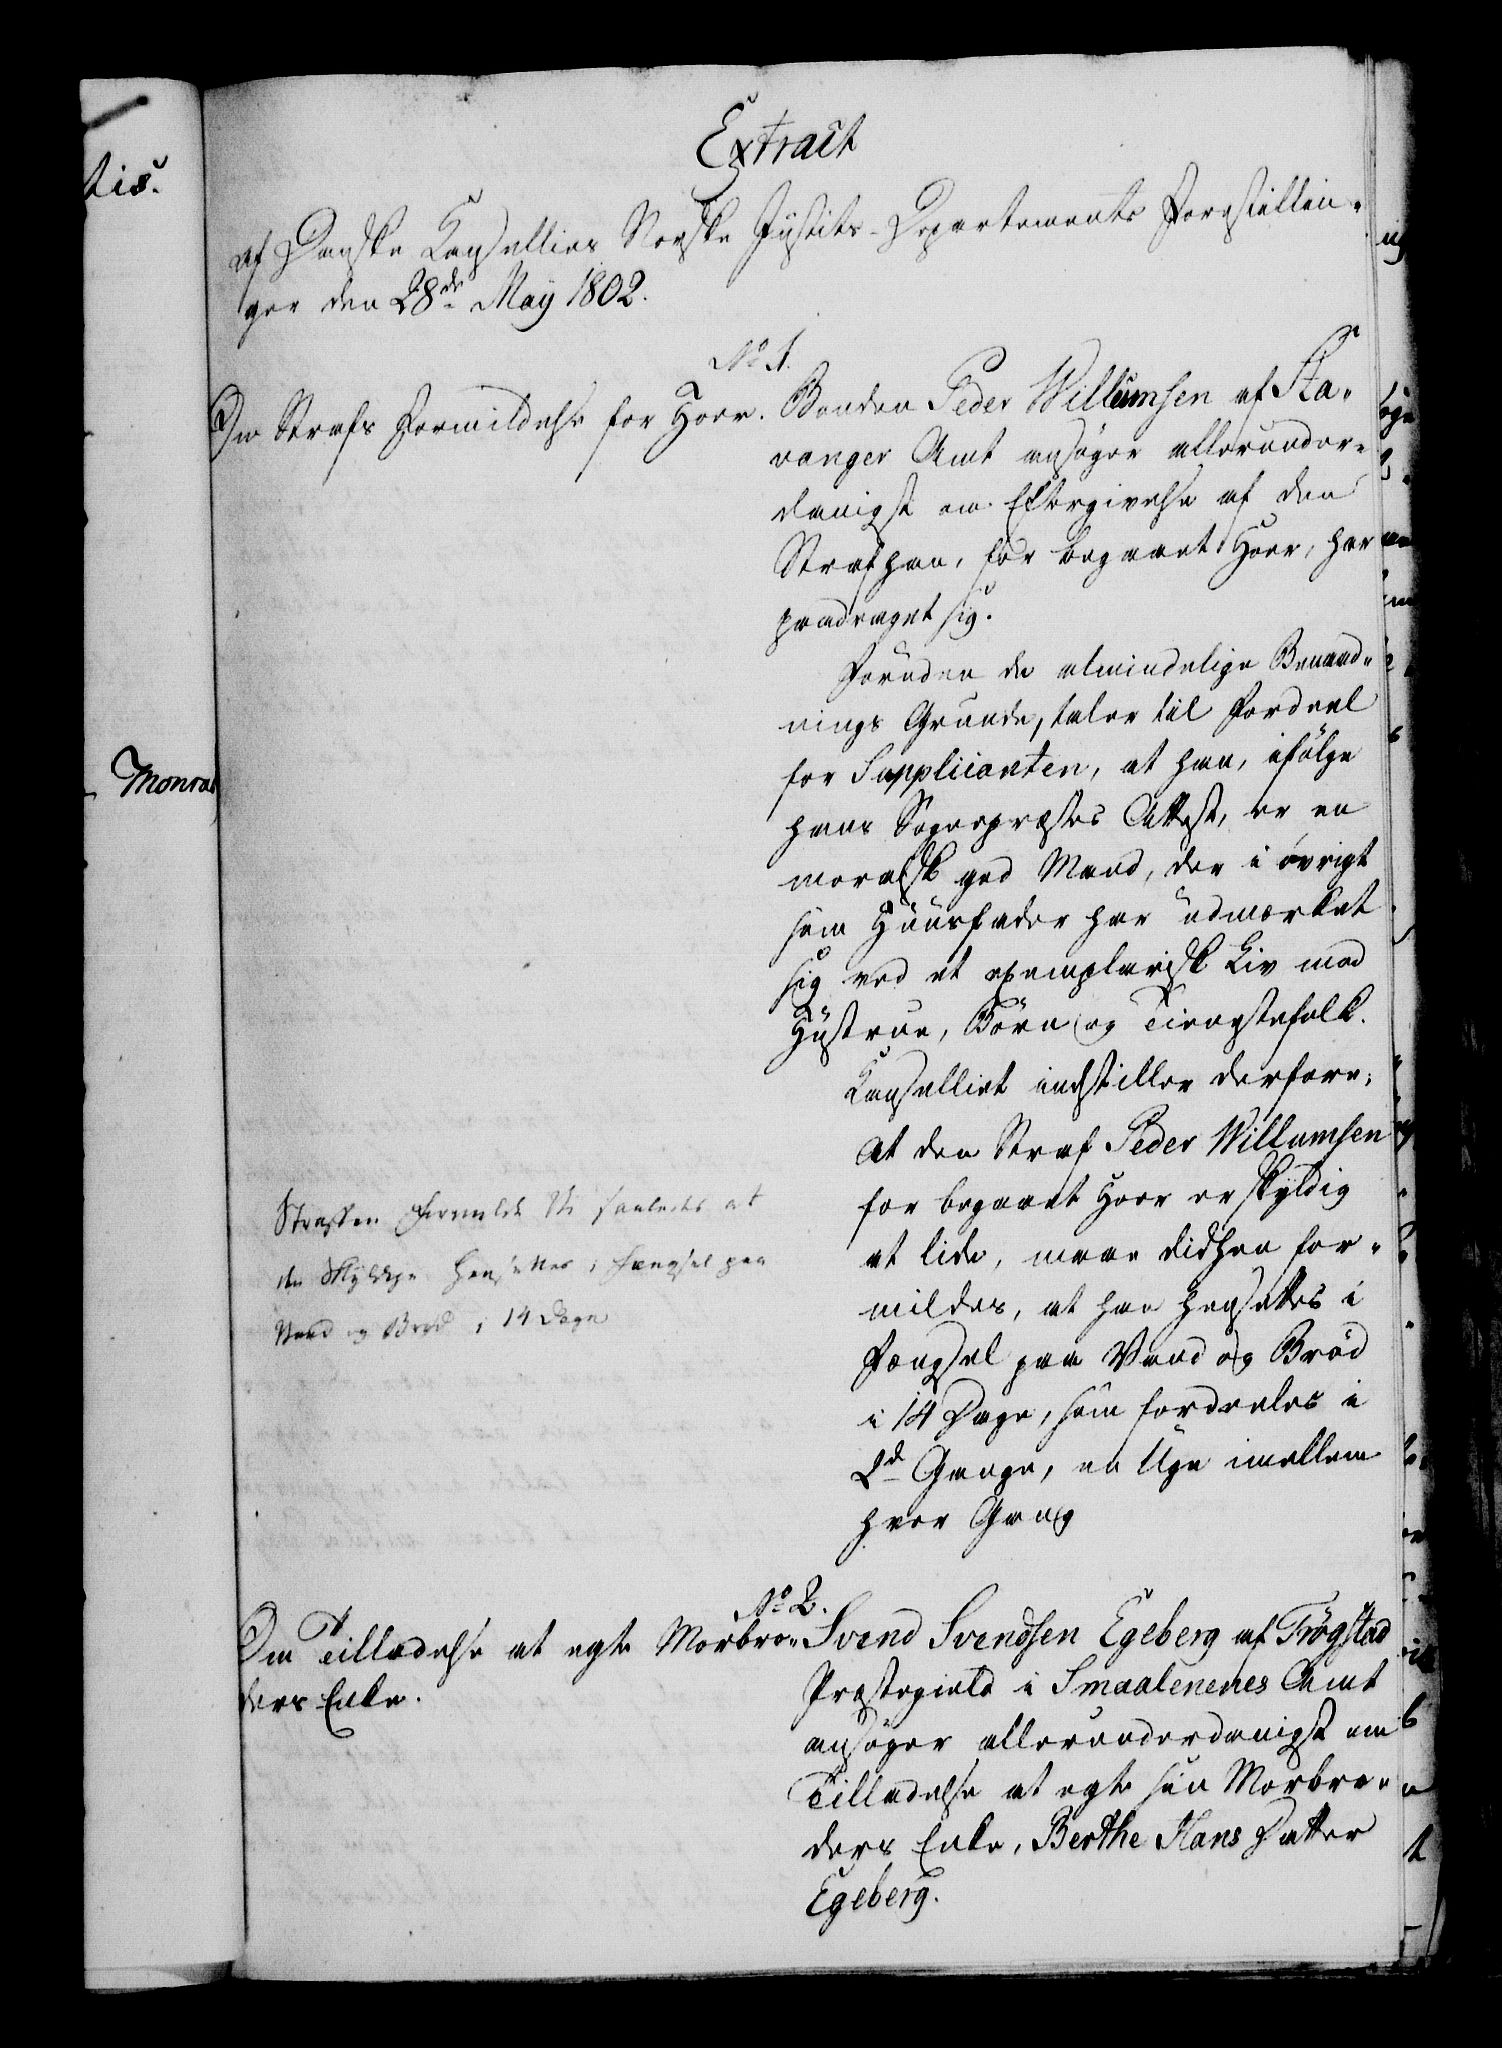 tis.
Monrad
Extract
af Danske Cancellies Norske Justits-Departements Forestillin-
ger den 28de May 1802.
No 1.
Om Strafs Formildelse for Hoer.
Bonden Peder Willumsen af Sta-
vanger Amt ansøger allerunder-
danigst om Eftergivelse af den
Straf han, for begaaet Hoer, har
paadraget sig.
Foruden de almindelige Benaad-
nings Grunde, taler til Fordeel
for Supplicanten, at han, ifølge
hans Sognepræstes Attest, er en
moralsk god Mand, der i øvrigt
som Huusfader har udmærket
sig ved et exemplarisk Liv med
Hustrue, Børn og Tienestefolk.
Cancelliet indstiller derfore,
At den Straf Peder Willumsen
for begaaet Hoer er skyldig
at lide, maae didhen for-
mildes, at han hensættes i
Fængsel paa Vand og Brød
i 14 Dage, som fordeeles i
2de Gange, en Uge imellem
hver Gang
Straffen formilde Vi saaledes at
den Skyldige hensættes i Fængsel paa
Vand og Brød i 14 Dage
No 2.
Om Tilladelse at egte Morbro-
ders Enke.
Svend Svendsen Egeberg af Trøgstad
Præstegield i Smaalenenes Amt
ansøger allerunderdanigst om
Tilladelse at egte sin Morbro-
ders Enke, Berthe Hans Datter
Egeberg.